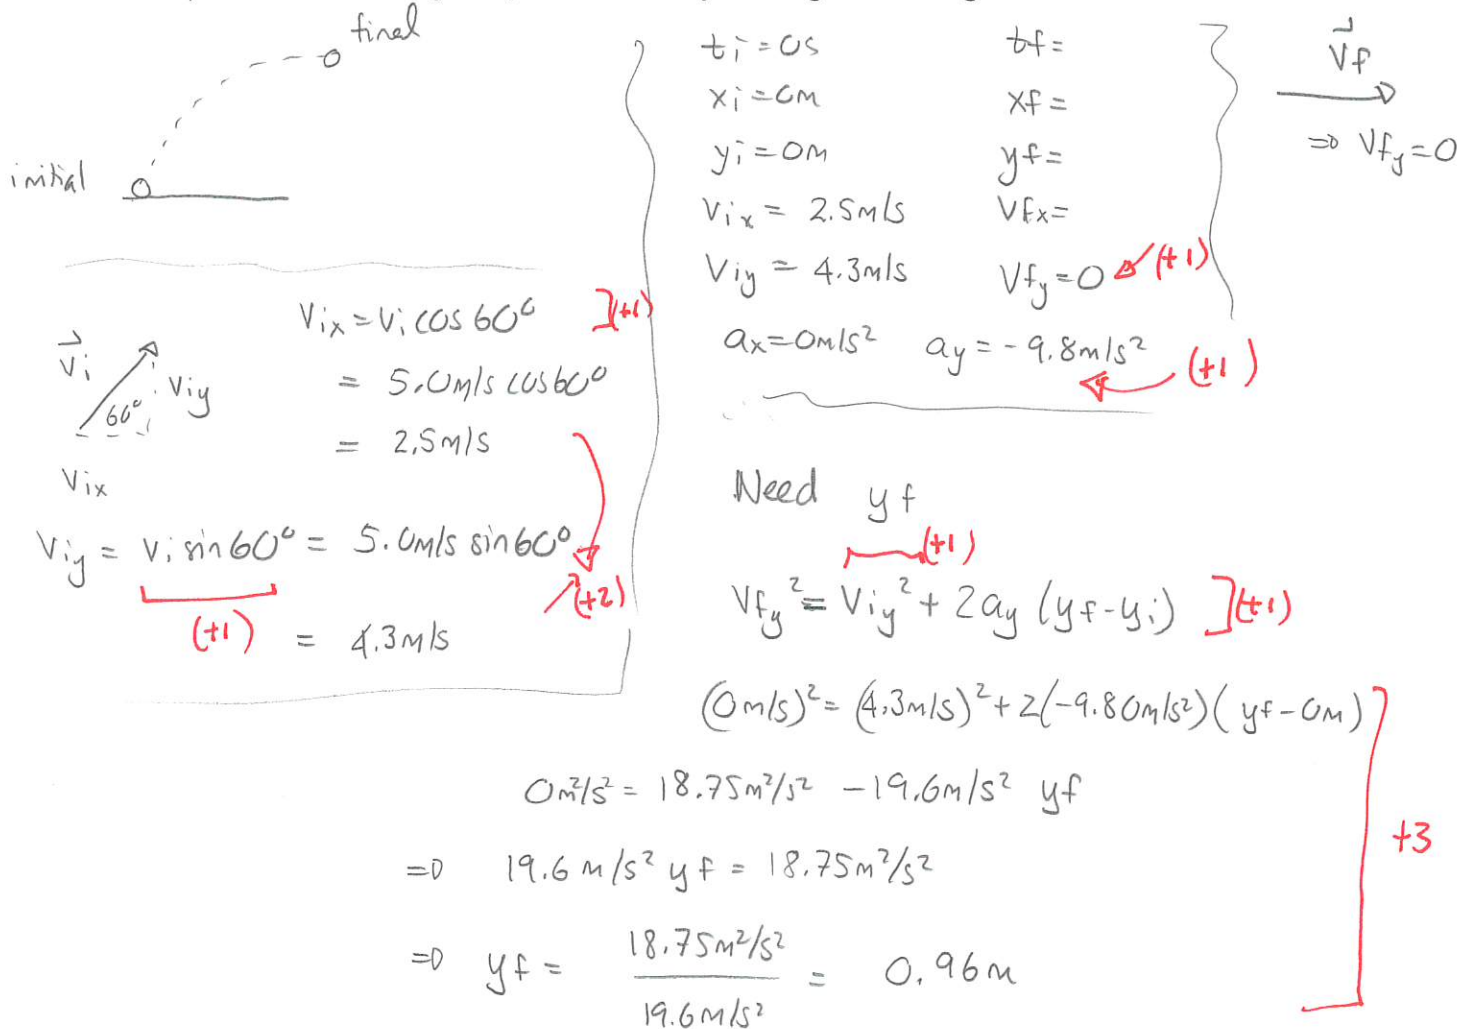 final
initial
V⃗i
60°
Viy
Vix
Vix = Vi cos 60° ](+1)
= 5.0m/s cos60°
= 2.5m/s
Viy = Vi sin60° = 5.0m/s sin60°
(+1)
(+2)
= 4.3m/s
ti = 0s tf =
xi = 0m xf =
yi = 0m yf =
Vix = 2.5m/s Vfx =
Viy = 4.3m/s Vfy = 0 (+1)
ax = 0m/s² ay = -9.8m/s²
(+1)
V⃗f
⇒ Vfy = 0
Need yf
(+1)
Vfy² = Viy² + 2ay (yf - yi) ](+1)
(0m/s)² = (4.3m/s)² + 2(-9.80m/s²)(yf - 0m)
0m²/s² = 18.75m²/s² - 19.6m/s² yf
+3
⇒ 19.6 m/s² yf = 18.75m²/s²
⇒ yf = 18.75m²/s² / 19.6m/s² = 0.96m